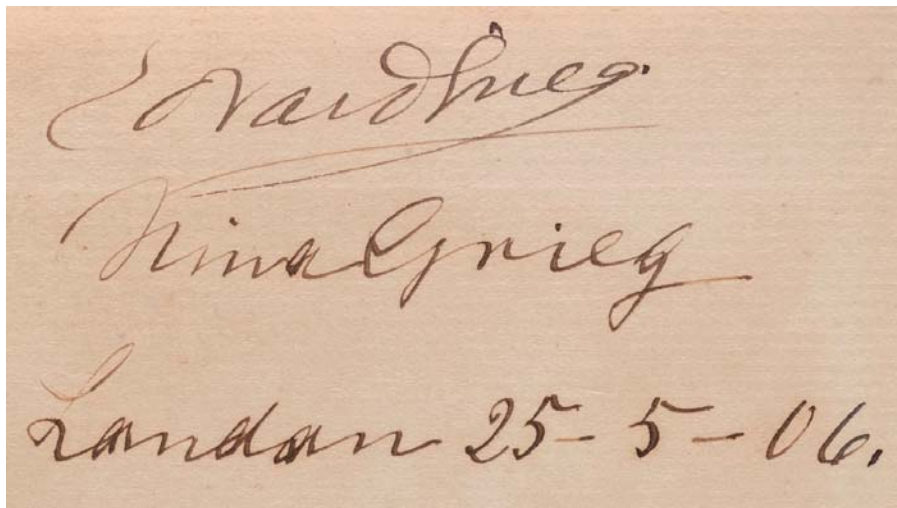 Edvard Grieg.
Nina Grieg
London 25-5-06.